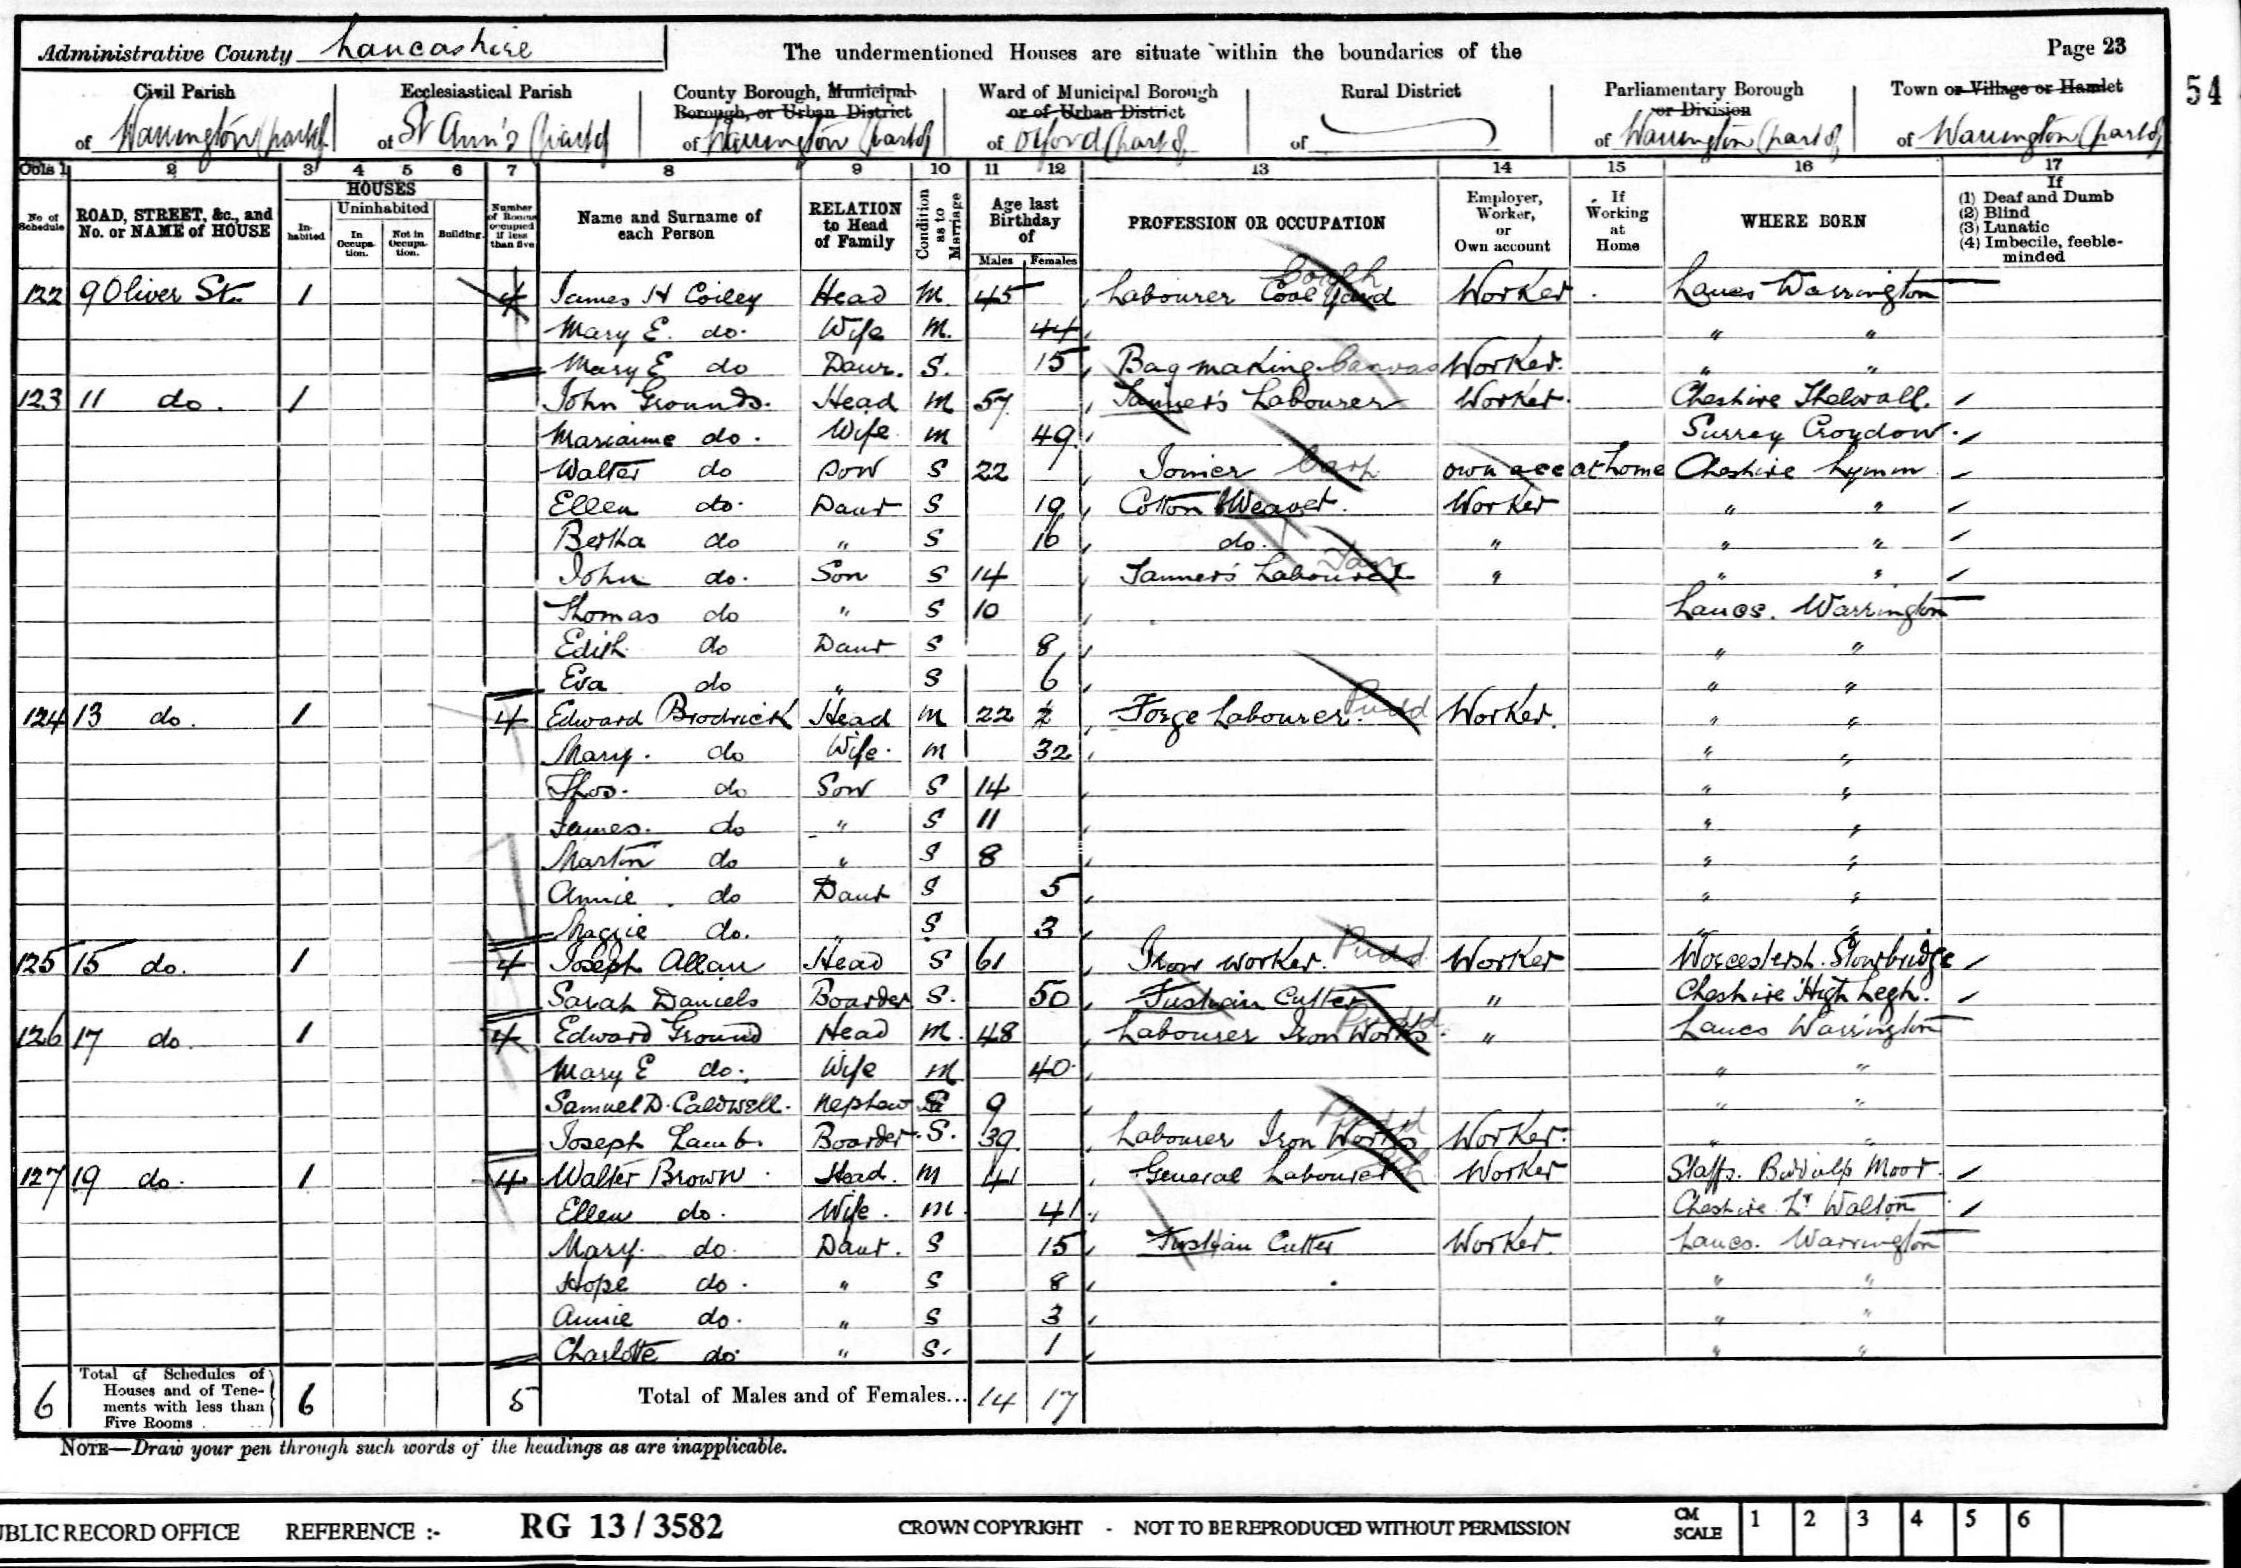 Administrative County Lancashire The undermentioned Houses are situate within the boundaries of the Page 23
54
Civil Parish Ecclesiastical Parish County Borough, Municipal Ward of Municipal Borough Rural District Parliamentary Borough Town or Village or Hamlet
Borough, or Urban District or of Urban District or Division
of Warrington (part of of St Ann's (part of of Warrington (part of of Orford (part of of of Warrington (part of of Warrington (part of
Cols 1 2 3 4 5 6 7 8 9 10 11 12 13 14 15 16 17
No of Schedule ROAD, STREET, &c., and No. or NAME of HOUSE HOUSES In-habited Uninhabited In Occupa-tion. Not in Occupa-tion. Building. Number of Rooms occupied if less than five Name and Surname of each Person RELATION to Head of Family Condition as to Marriage Age last Birthday of Males Females PROFESSION OR OCCUPATION Employer, Worker, or Own account If Working at Home WHERE BORN If (1) Deaf and Dumb (2) Blind (3) Lunatic (4) Imbecile, feeble-minded
122 9 Oliver St. 1 4 James H Coiley Head M 45 Labourer Coal Yard Worker Lancs Warrington
Mary E. do. Wife M. 44 " "
Mary E do Daur. S. 15 Bag making Canvas Worker. " "
123 11 do. 1 John Grounds. Head M 57 Tanner's Labourer Worker. Cheshire Thelwall.
do. Wife m 49 Surrey Croydon.
Walter do Son S 22 Joiner Carp own acc at home Cheshire Lymm
Ellen do. Daur S 19 Cotton Weaver. Worker " "
Bertha do " S 16 do. " " "
John do. Son S 14 Tanner's Labourer Tan " " "
Thomas do " S 10 Lancs. Warrington
Edith do Daur S 8 " "
Eva do " S 6 " "
124 13 do. 1 4 Edward Brodrick Head m 22 Forge Labourer. Pudd Worker. " "
Mary. do Wife. m 32 " "
Thos. do Son S 14 " "
James. do " S 11 " "
Martin do " S 8 " "
Annie. do Daur S 5 " "
Maggie do. " S 3 " "
125 15 do. 1 4 Joseph Allan Head S 61 Iron worker. Pudd Worker Worcestersh. Stourbridge
Sarah Daniels Boarder S. 50 Fustian Cutter " Cheshire High Legh.
126 17 do 1 4 Edward Ground Head m. 48 Labourer Iron Works. Pudd " Lancs Warrington
Mary E do. Wife m 40 " "
Samuel D. Caldwell. Nephew S 9 " "
Joseph Lamb. Boarder. S. 39 Labourer Iron Works Pudd Worker. " "
127 19 do. 1 4 Walter Brown Head. m 41 General Labourer Worker Staffs. Biddulp Moor.
Ellen do. Wife. m. 41 Cheshire Lr Walton
Mary. do. Daur. S 15 Fustian Cutter Worker. Lancs. Warrington
Hope do. " S 8 " "
Annie do. " S 3 " "
Charlotte do. " S. 1 " "
6 Total of Schedules of Houses and of Tene-ments with less than Five Rooms 6 5 Total of Males and of Females... 14 17
NOTE—Draw your pen through such words of the headings as are inapplicable.
UBLIC RECORD OFFICE REFERENCE :- RG 13 / 3582 CROWN COPYRIGHT - NOT TO BE REPRODUCED WITHOUT PERMISSION CM SCALE 1 2 3 4 5 6